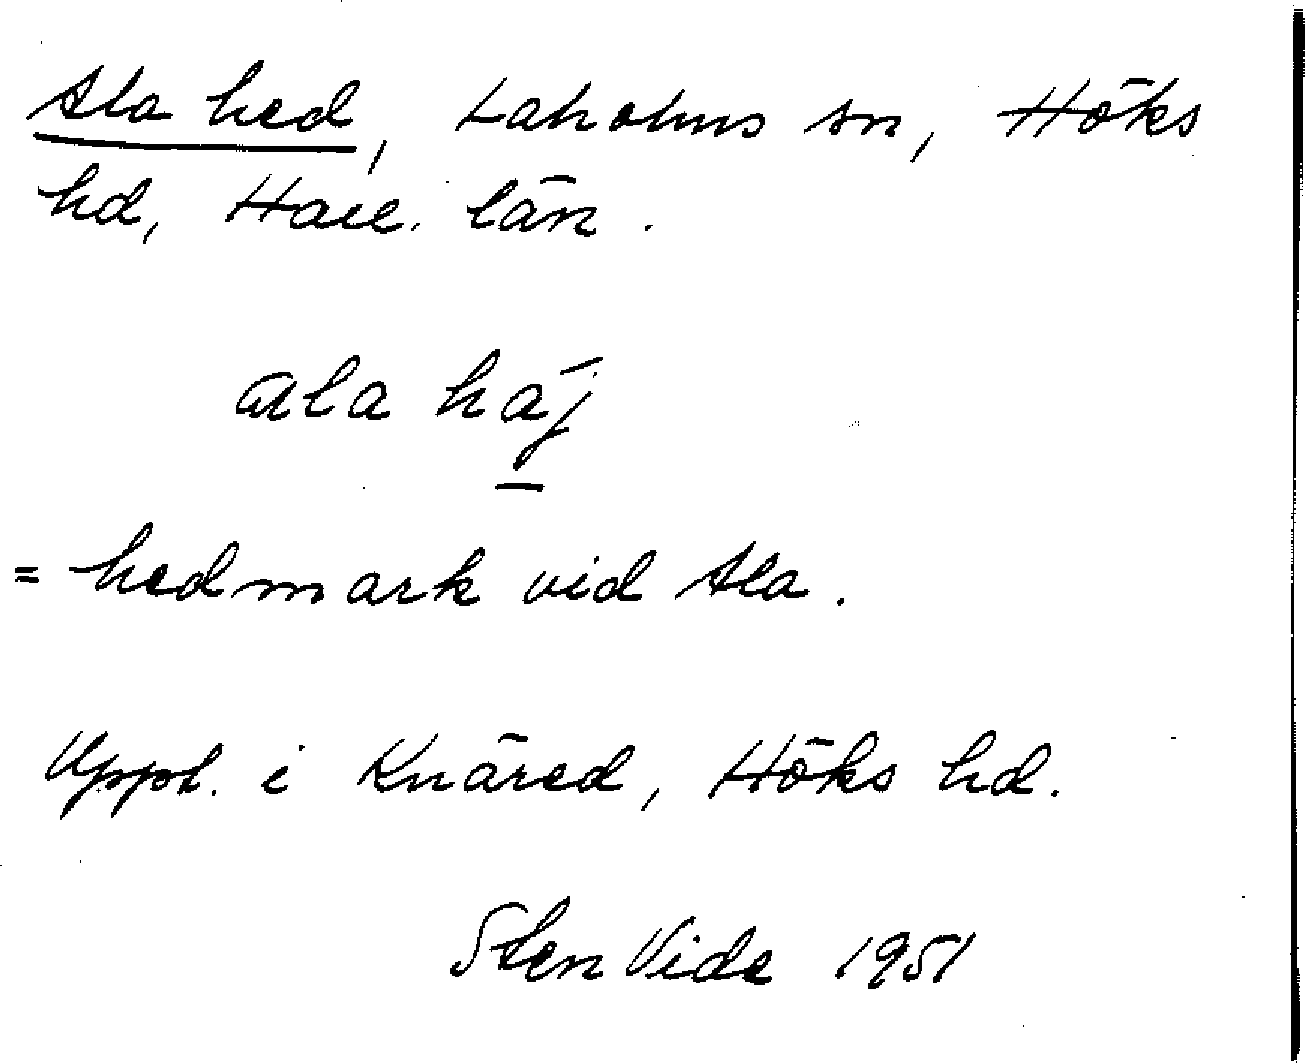 Ala hed, Laholms sn, Höks
hd, Hall. län.
ala häj
= hedmark vid Ala.
Uppt. i Knäred, Höks hd.
Sten Vide 1951